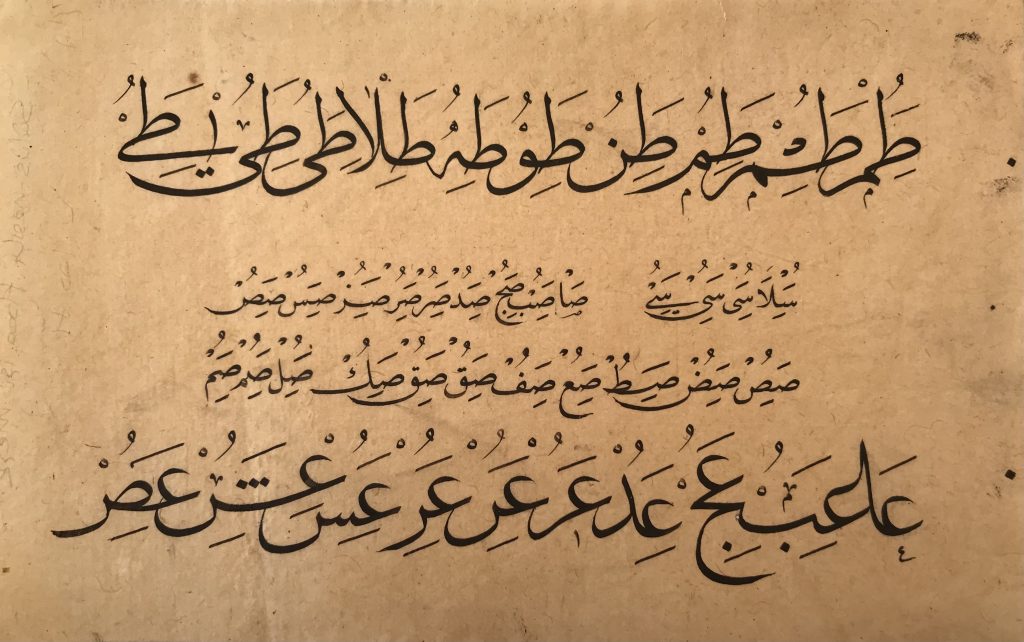 طم طم طم طن طو طه طلا طى طى طے
سلا سى سى سے صا صب صج صد صر صر صر صس صص
صص صص صط صع صف صق صق صك صل صم صم
عا عب عج عد عر عر عر عس عش عص